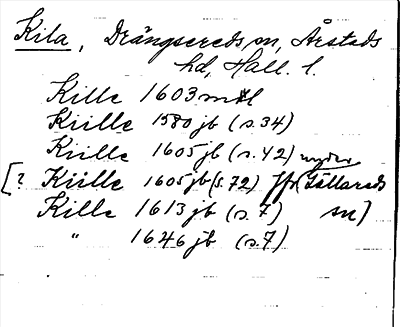 Kila, Drängsereds sn, Årstads
hd, Hall. l.
Kille 1603 mtl
Kiille 1580 jb (s. 34)
Kiille 1605 jb (s. 42)
[? Kiille 1605 jb (s. 72) Jfr Gällareds
Kille 1613 jb (s. 7) sn]
" 1646 jb (s. 7)